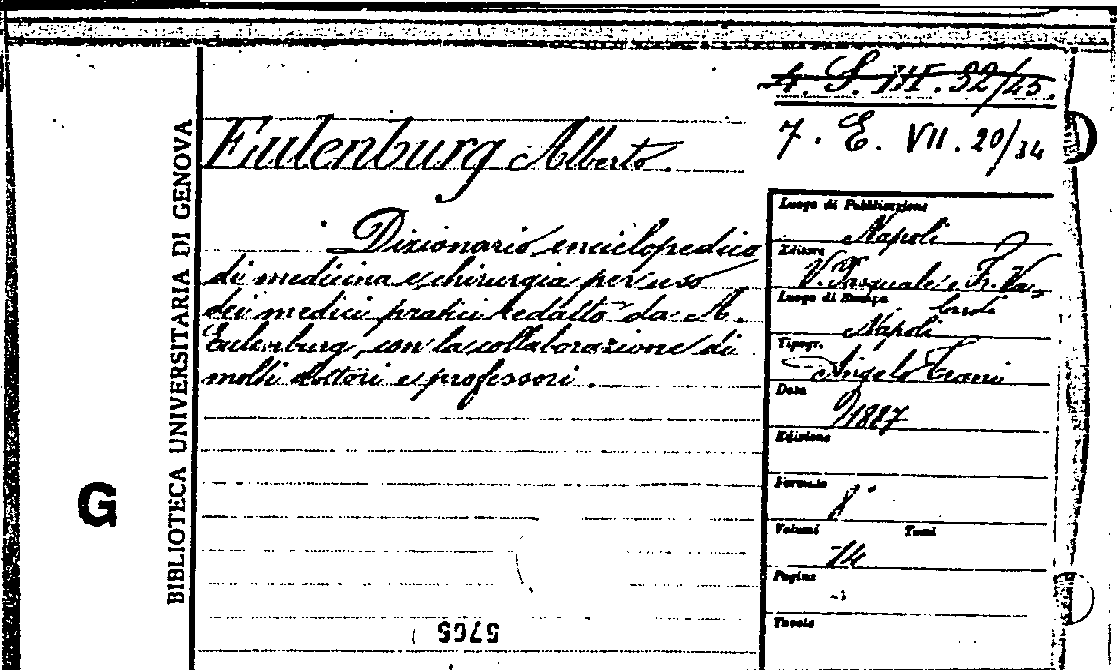 4. S. III. 32/45.
7. E. VII. 20/34
Eulenburg Alberto.
Dizionario enciclopedico
di medicina e chirurgia per uso
dei medici pratici redatto da A.
Eulenburg, con la collaborazione di
molti dottori e professori.
Luogo di Pubblicazione
Napoli
Editore
V. Pasquale e Fr. Val-
lardi
Luogo di Stampa
Napoli
Tipogr.
Angelo Trani
Data
1887
Edizione
Formato
8°
Volumi Tomi
14
Pagine
Tavole
BIBLIOTECA UNIVERSITARIA DI GENOVA
G